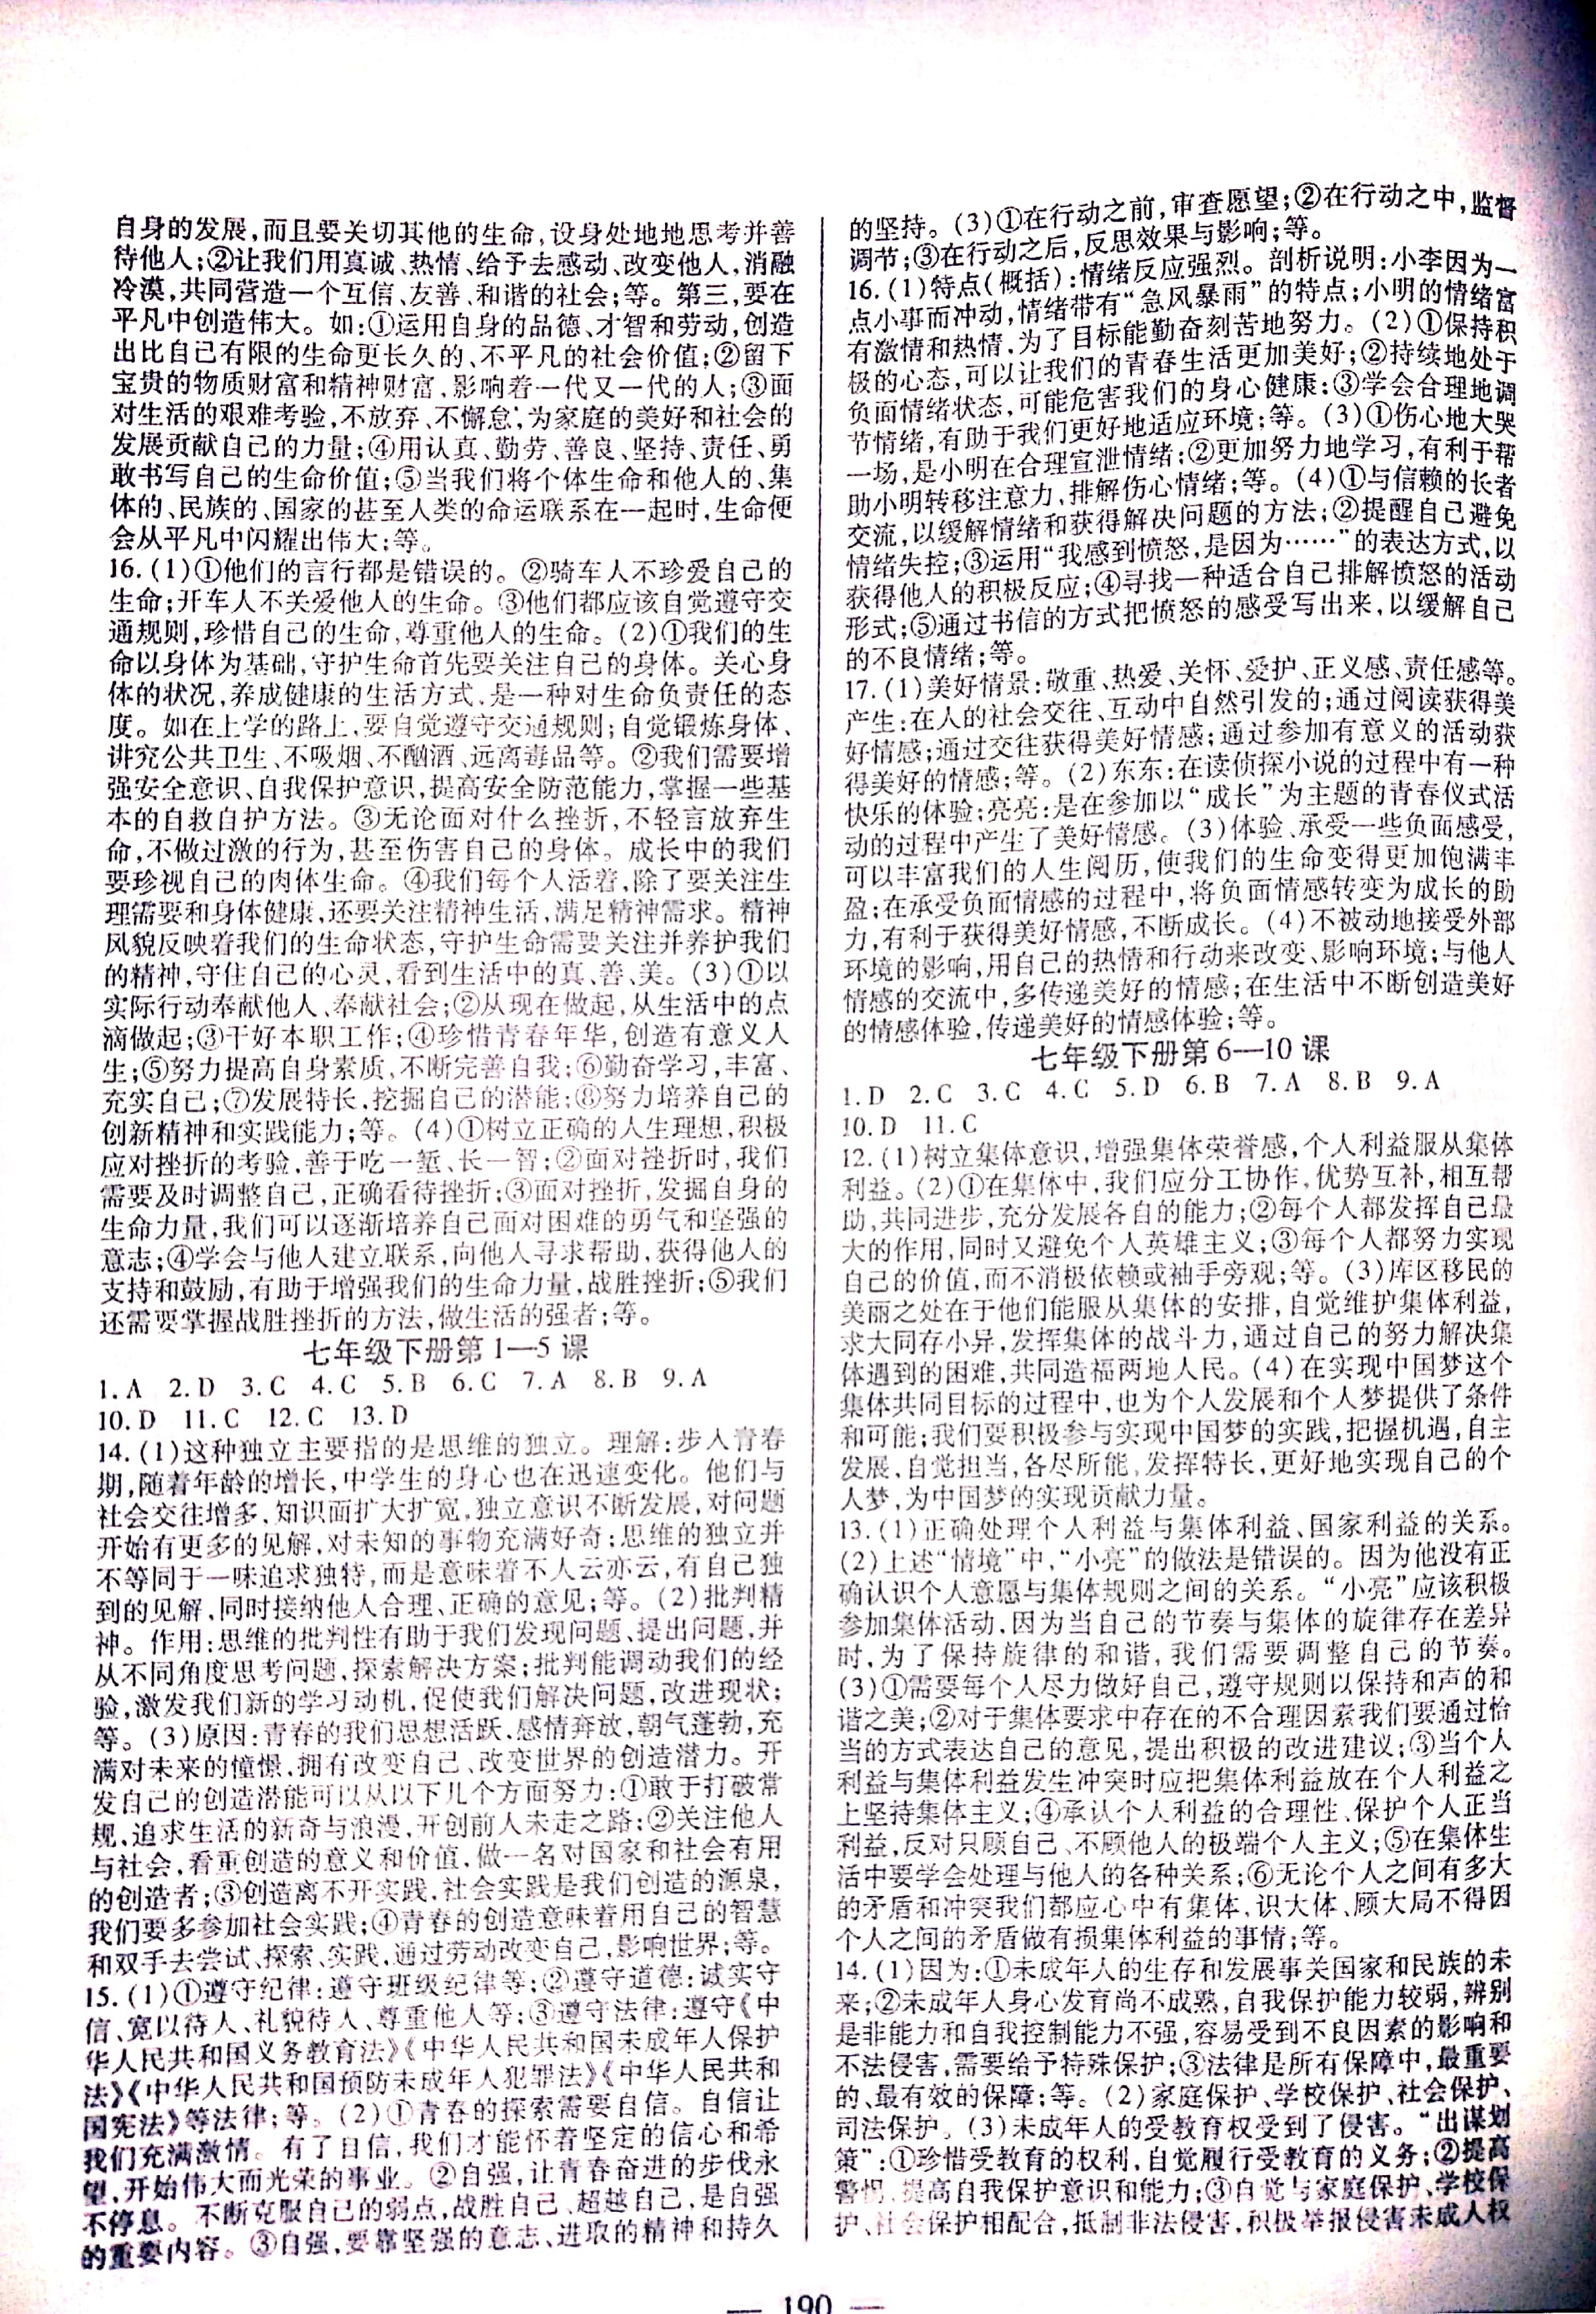 自身的发展,而且要关切其他的生命,设身处地地思考并善
待他人;②让我们用真诚、热情、给予去感动、改变他人,消融
冷漠,共同营造一个互信、友善、和谐的社会;等。第三,要在
平凡中创造伟大。如:①运用自身的品德、才智和劳动,创造
出比自己有限的生命更长久的、不平凡的社会价值;②留下
宝贵的物质财富和精神财富,影响着一代又一代的人;③面
对生活的艰难考验,不放弃、不懈怠,为家庭的美好和社会的
发展贡献自己的力量;④用认真、勤劳、善良、坚持、责任、勇
敢书写自己的生命价值;⑤当我们将个体生命和他人的、集
体的、民族的、国家的甚至人类的命运联系在一起时,生命便
会从平凡中闪耀出伟大;等。
16.(1)①他们的言行都是错误的。②骑车人不珍爱自己的
生命;开车人不关爱他人的生命。③他们都应该自觉遵守交
通规则,珍惜自己的生命,尊重他人的生命。(2)①我们的生
命以身体为基础,守护生命首先要关注自己的身体。关心身
体的状况,养成健康的生活方式,是一种对生命负责任的态
度。如在上学的路上,要自觉遵守交通规则;自觉锻炼身体、
讲究公共卫生、不吸烟、不酗酒、远离毒品等。②我们需要增
强安全意识、自我保护意识,提高安全防范能力,掌握一些基
本的自救自护方法。③无论面对什么挫折,不轻言放弃生
命,不做过激的行为,甚至伤害自己的身体。成长中的我们
要珍视自己的肉体生命。④我们每个人活着,除了要关注生
理需要和身体健康,还要关注精神生活,满足精神需求。精神
风貌反映着我们的生命状态,守护生命需要关注并养护我们
的精神,守住自己的心灵,看到生活中的真、善、美。(3)①以
实际行动奉献他人、奉献社会;②从现在做起,从生活中的点
滴做起;③干好本职工作;④珍惜青春年华,创造有意义人
生;⑤努力提高自身素质,不断完善自我;⑥勤奋学习,丰富、
充实自己;⑦发展特长,挖掘自己的潜能;⑧努力培养自己的
创新精神和实践能力;等。(4)①树立正确的人生理想,积极
应对挫折的考验,善于吃一堑、长一智;②面对挫折时,我们
需要及时调整自己,正确看待挫折;③面对挫折,发掘自身的
生命力量,我们可以逐渐培养自己面对困难的勇气和坚强的
意志;④学会与他人建立联系,向他人寻求帮助,获得他人的
支持和鼓励,有助于增强我们的生命力量,战胜挫折;⑤我们
还需要掌握战胜挫折的方法,做生活的强者;等。
七年级下册第1—5课
1.A 2.D 3.C 4.C 5.B 6.C 7.A 8.B 9.A
10.D 11.C 12.C 13.D
14.(1)这种独立主要指的是思维的独立。理解:步入青春
期,随着年龄的增长,中学生的身心也在迅速变化。他们与
社会交往增多,知识面扩大扩宽,独立意识不断发展,对问题
开始有更多的见解,对未知的事物充满好奇;思维的独立并
不等同于一味追求独特,而是意味着不人云亦云,有自己独
到的见解,同时接纳他人合理、正确的意见;等。(2)批判精
神。作用:思维的批判性有助于我们发现问题、提出问题,并
从不同角度思考问题,探索解决方案;批判能调动我们的经
验,激发我们新的学习动机,促使我们解决问题,改进现状;
等。(3)原因:青春的我们思想活跃,感情奔放,朝气蓬勃,充
满对未来的憧憬,拥有改变自己、改变世界的创造潜力。开
发自己的创造潜能可以从以下几个方面努力:①敢于打破常
规,追求生活的新奇与浪漫,开创前人未走之路;②关注他人
与社会,看重创造的意义和价值,做一名对国家和社会有用
的创造者;③创造离不开实践,社会实践是我们创造的源泉,
我们要多参加社会实践;④青春的创造意味着用自己的智慧
和双手去尝试、探索、实践,通过劳动改变自己,影响世界;等。
15.(1)①遵守纪律:遵守班级纪律等;②遵守道德:诚实守
信、宽以待人、礼貌待人、尊重他人等;③遵守法律:遵守《中
华人民共和国义务教育法》《中华人民共和国未成年人保护
法》《中华人民共和国预防未成年人犯罪法》《中华人民共和
国宪法》等法律;等。(2)①青春的探索需要自信。自信让
我们充满激情。有了自信,我们才能怀着坚定的信心和希
望,开始伟大而光荣的事业。②自强,让青春奋进的步伐永
不停息。不断克服自己的弱点,战胜自己、超越自己,是自强
的重要内容。③自强,要靠坚强的意志、进取的精神和持久
的坚持。(3)①在行动之前,审查愿望;②在行动之中,监督
调节;③在行动之后,反思效果与影响;等。
16.(1)特点(概括):情绪反应强烈。剖析说明:小李因为一
点小事而冲动,情绪带有“急风暴雨”的特点;小明的情绪富
有激情和热情,为了目标能勤奋刻苦地努力。(2)①保持积
极的心态,可以让我们的青春生活更加美好;②持续地处于
负面情绪状态,可能危害我们的身心健康;③学会合理地调
节情绪,有助于我们更好地适应环境;等。(3)①伤心地大哭
一场,是小明在合理宣泄情绪;②更加努力地学习,有利于帮
助小明转移注意力,排解伤心情绪;等。(4)①与信赖的长者
交流,以缓解情绪和获得解决问题的方法;②提醒自己避免
情绪失控;③运用“我感到愤怒,是因为……”的表达方式,以
获得他人的积极反应;④寻找一种适合自己排解愤怒的活动
形式;⑤通过书信的方式把愤怒的感受写出来,以缓解自己
的不良情绪;等。
17.(1)美好情景:敬重、热爱、关怀、爱护、正义感、责任感等。
产生:在人的社会交往、互动中自然引发的;通过阅读获得美
好情感;通过交往获得美好情感;通过参加有意义的活动获
得美好的情感;等。(2)东东:在读侦探小说的过程中有一种
快乐的体验;亮亮:是在参加以“成长”为主题的青春仪式活
动的过程中产生了美好情感。(3)体验、承受一些负面感受,
可以丰富我们的人生阅历,使我们的生命变得更加饱满丰
盈;在承受负面情感的过程中,将负面情感转变为成长的助
力,有利于获得美好情感,不断成长。(4)不被动地接受外部
环境的影响,用自己的热情和行动来改变、影响环境;与他人
情感的交流中,多传递美好的情感;在生活中不断创造美好
的情感体验,传递美好的情感体验;等。
七年级下册第6—10课
1.D 2.C 3.C 4.C 5.D 6.B 7.A 8.B 9.A
10.D 11.C
12.(1)树立集体意识,增强集体荣誉感,个人利益服从集体
利益。(2)①在集体中,我们应分工协作,优势互补,相互帮
助,共同进步,充分发展各自的能力;②每个人都发挥自己最
大的作用,同时又避免个人英雄主义;③每个人都努力实现
自己的价值,而不消极依赖或袖手旁观;等。(3)库区移民的
美丽之处在于他们能服从集体的安排,自觉维护集体利益,
求大同存小异,发挥集体的战斗力,通过自己的努力解决集
体遇到的困难,共同造福两地人民。(4)在实现中国梦这个
集体共同目标的过程中,也为个人发展和个人梦提供了条件
和可能;我们要积极参与实现中国梦的实践,把握机遇,自主
发展,自觉担当,各尽所能,发挥特长,更好地实现自己的个
人梦,为中国梦的实现贡献力量。
13.(1)正确处理个人利益与集体利益、国家利益的关系。
(2)上述“情境”中,“小亮”的做法是错误的。因为他没有正
确认识个人意愿与集体规则之间的关系。“小亮”应该积极
参加集体活动,因为当自己的节奏与集体的旋律存在差异
时,为了保持旋律的和谐,我们需要调整自己的节奏。
(3)①需要每个人尽力做好自己,遵守规则以保持和声的和
谐之美;②对于集体要求中存在的不合理因素我们要通过恰
当的方式表达自己的意见,提出积极的改进建议;③当个人
利益与集体利益发生冲突时应把集体利益放在个人利益之
上坚持集体主义;④承认个人利益的合理性、保护个人正当
利益,反对只顾自己、不顾他人的极端个人主义;⑤在集体生
活中要学会处理与他人的各种关系;⑥无论个人之间有多大
的矛盾和冲突我们都应心中有集体,识大体、顾大局不得因
个人之间的矛盾做有损集体利益的事情;等。
14.(1)因为:①未成年人的生存和发展事关国家和民族的未
来;②未成年人身心发育尚不成熟,自我保护能力较弱,辨别
是非能力和自我控制能力不强,容易受到不良因素的影响和
不法侵害,需要给予特殊保护;③法律是所有保障中,最重要
的、最有效的保障;等。(2)家庭保护、学校保护、社会保护、
司法保护。(3)未成年人的受教育权受到了侵害。“出谋划
策”:①珍惜受教育的权利,自觉履行受教育的义务;②提高
警惕,提高自我保护意识和能力;③自觉与家庭保护、学校保
护、社会保护相配合,抵制非法侵害,积极举报侵害未成人权
— 190 —